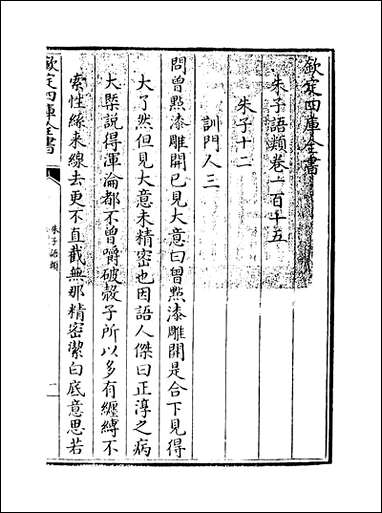 欽定四庫全書
朱子語類卷一百十五
朱子十二
訓門人三
問曾㸃漆雕開已見大意曰曾㸃漆雕開是合下見得
大了然但見大意未精密也因語人傑曰正淳之病
大槩說得渾淪都不曽嚼破殼子所以多有纏縛不
索性絲来線去更不直截無那精密潔白底意思若
欽定四庫全書
朱子語類